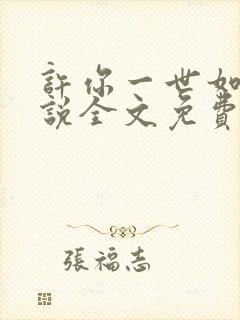 許你一世如
說全文免費
張福志